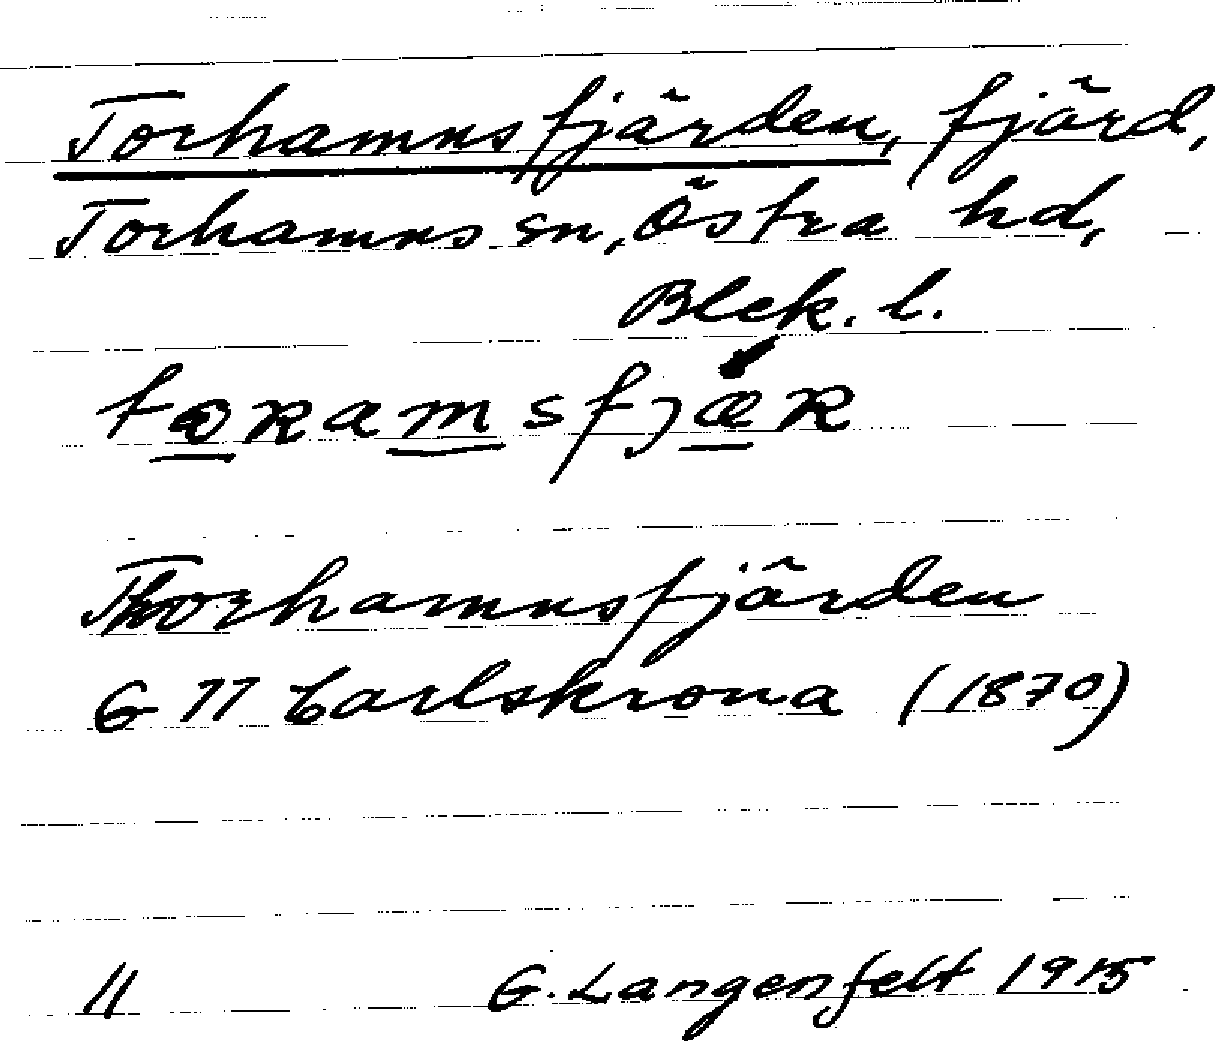 Torhamnsfjärden, fjärd,
Torhamns sn, Östra hd,
Blek. l.
Thorhamnsfjärden
G II Carlskrona (1870)
G. Langenfelt 1915